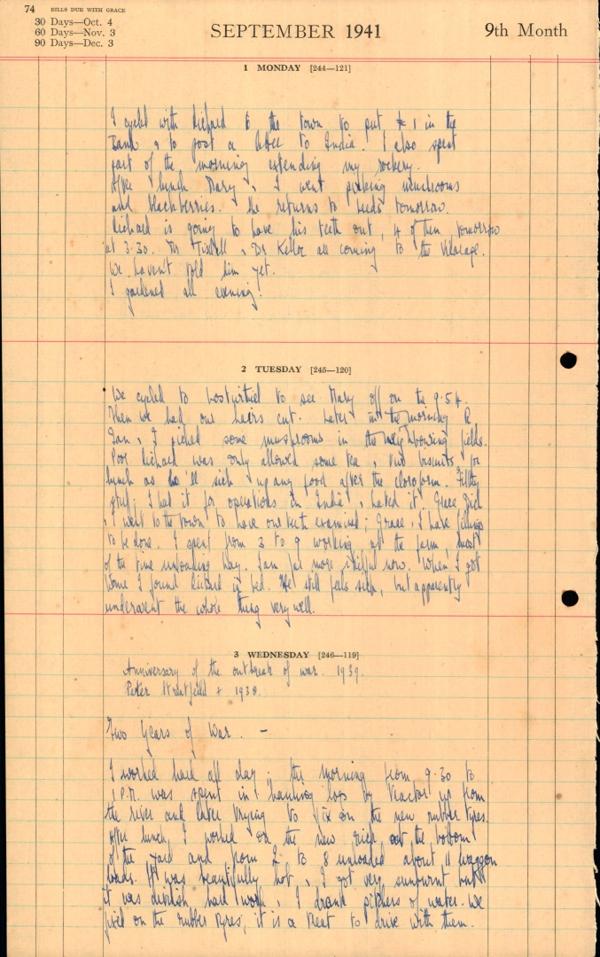 74 BILLS DUE WITH GRACE
30 Days—Oct. 4
60 Days—Nov. 3
90 Days—Dec. 3
SEPTEMBER 1941
9th Month
1 MONDAY [244—121]
I cycled with Richard to the town to put £1 in the
Bank & to post a letter to India. I also spent
part of the morning extending my rockery.
After lunch Mary & I went picking mushrooms
and blackberries. She returns to Leeds tomorrow.
Richard is going to have his teeth out, 4 of them tomorrow
at 3.30. Mr & Dr Kellar are coming to the Vicarage.
We haven't told him yet.
I gardened all evening.
2 TUESDAY [245—120]
We cycled to Lostwithiel to see Mary off on the 9.54.
Then we had our hairs cut. Later in the morning R
Ian & I picked some mushrooms in the neighbouring fields.
Poor Richard was only allowed some tea & two biscuits for
lunch as he'll sick up any food after the cloroform. Filthy
stuff; I had it for operations in India & hated it. Grace,
& I went to the town to have our teeth examined; Grace & I have fillings
to be done. I spent from 3 to 9 working at the farm, most
of the time unloading hay. I am far more skilful now. When I got
home I found Richard in bed. He still feels sick, but apparently
underwent the whole thing very well.
3 WEDNESDAY [246—119]
Anniversary of the outbreak of war. 1939.
Peter + 1938.
Two Years of War. —
I worked hard all day; the morning from 9.30 to
1 P.M. was spent in hauling logs by tractor up from
the river and later trying to fix on the new rubber tyres.
After lunch, I worked on the new rick at the bottom
of the yard and from 2 to 8 unloaded about 11 waggon
loads. It was beautifully hot, & I got very sunburnt but
it was devilish hard work & I drank pitchers of water. We
fixed on the rubber tyres, it is a treat to drive with them.